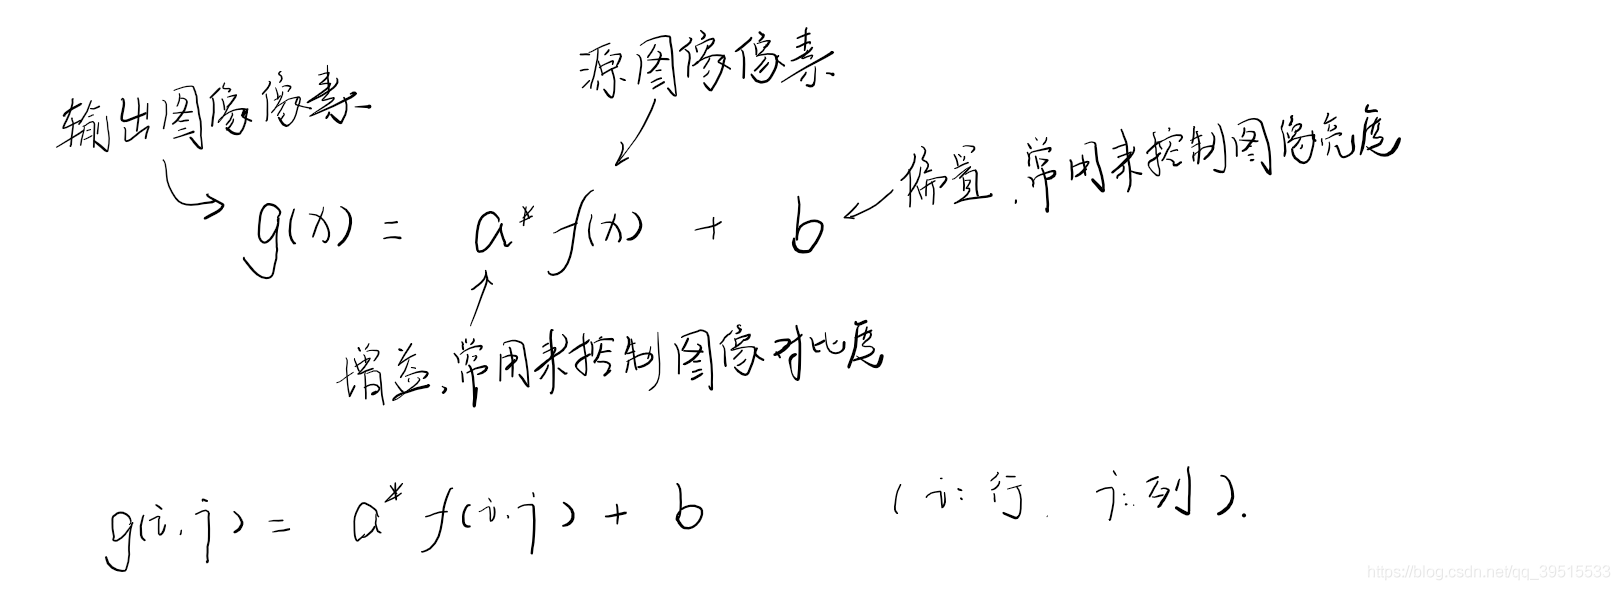 源图像像素
输出图像像素
偏置,常用来控制图像亮度
g(x) = a* f(x) + b
增益,常用来控制图像对比度
g(i,j) = a* f(i,j) + b (i:行, j:列).
https://blog.csdn.net/qq_39515533